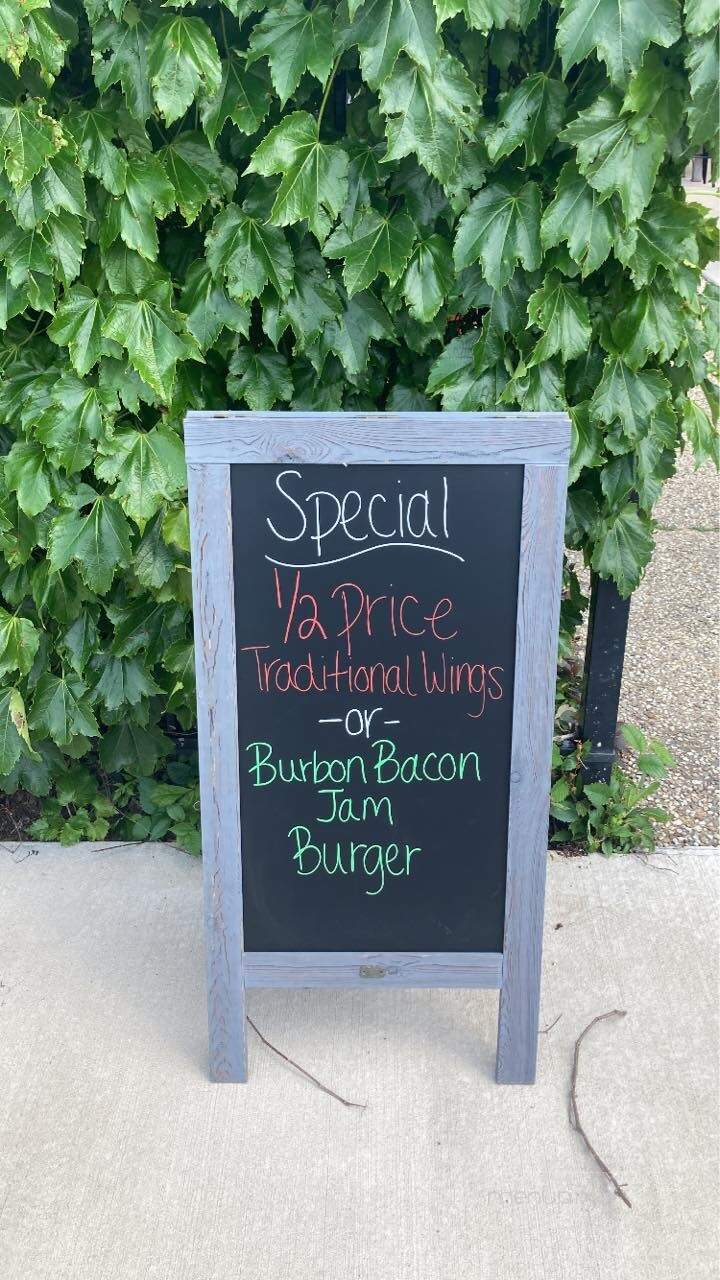 Special
1/2 Price
Traditional Wings
-or-
Burbon Bacon
Jam
Burger